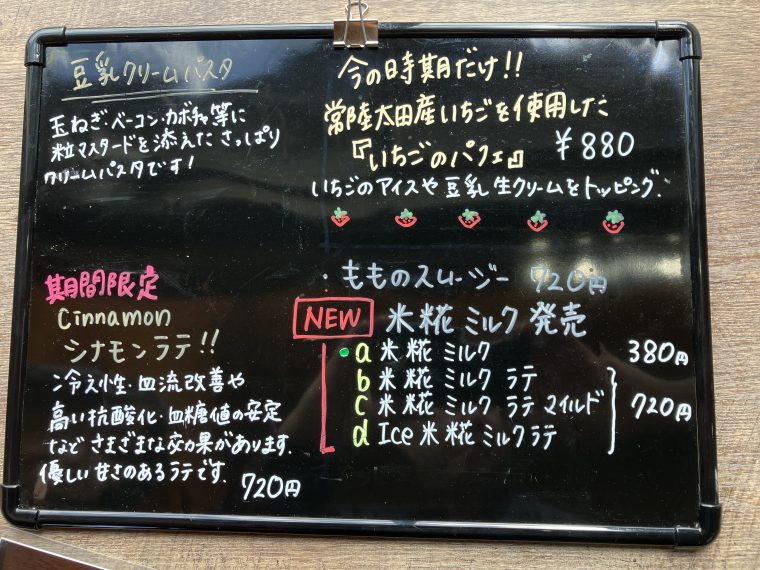 豆乳クリームパスタ
玉ねぎ・ベーコン・カボチャ等に
粒マスタードを添えた さっぱり
クリームパスタです!
今の時期だけ!!
常陸太田産いちごを使用した
『いちごのパフェ』 ¥880
いちごのアイスや豆乳生クリームをトッピング.
期間限定
Cinnamon
シナモンラテ!!
冷え性・血流改善や
高い抗酸化・血糖値の安定
など さまざまな効果があります.
優しい甘さのあるラテです.
720円
・もものスムージー 720円
NEW 米糀ミルク発売
a 米糀ミルク 380円
b 米糀ミルクラテ
c 米糀ミルクラテマイルド 720円
d Ice米糀ミルクラテ